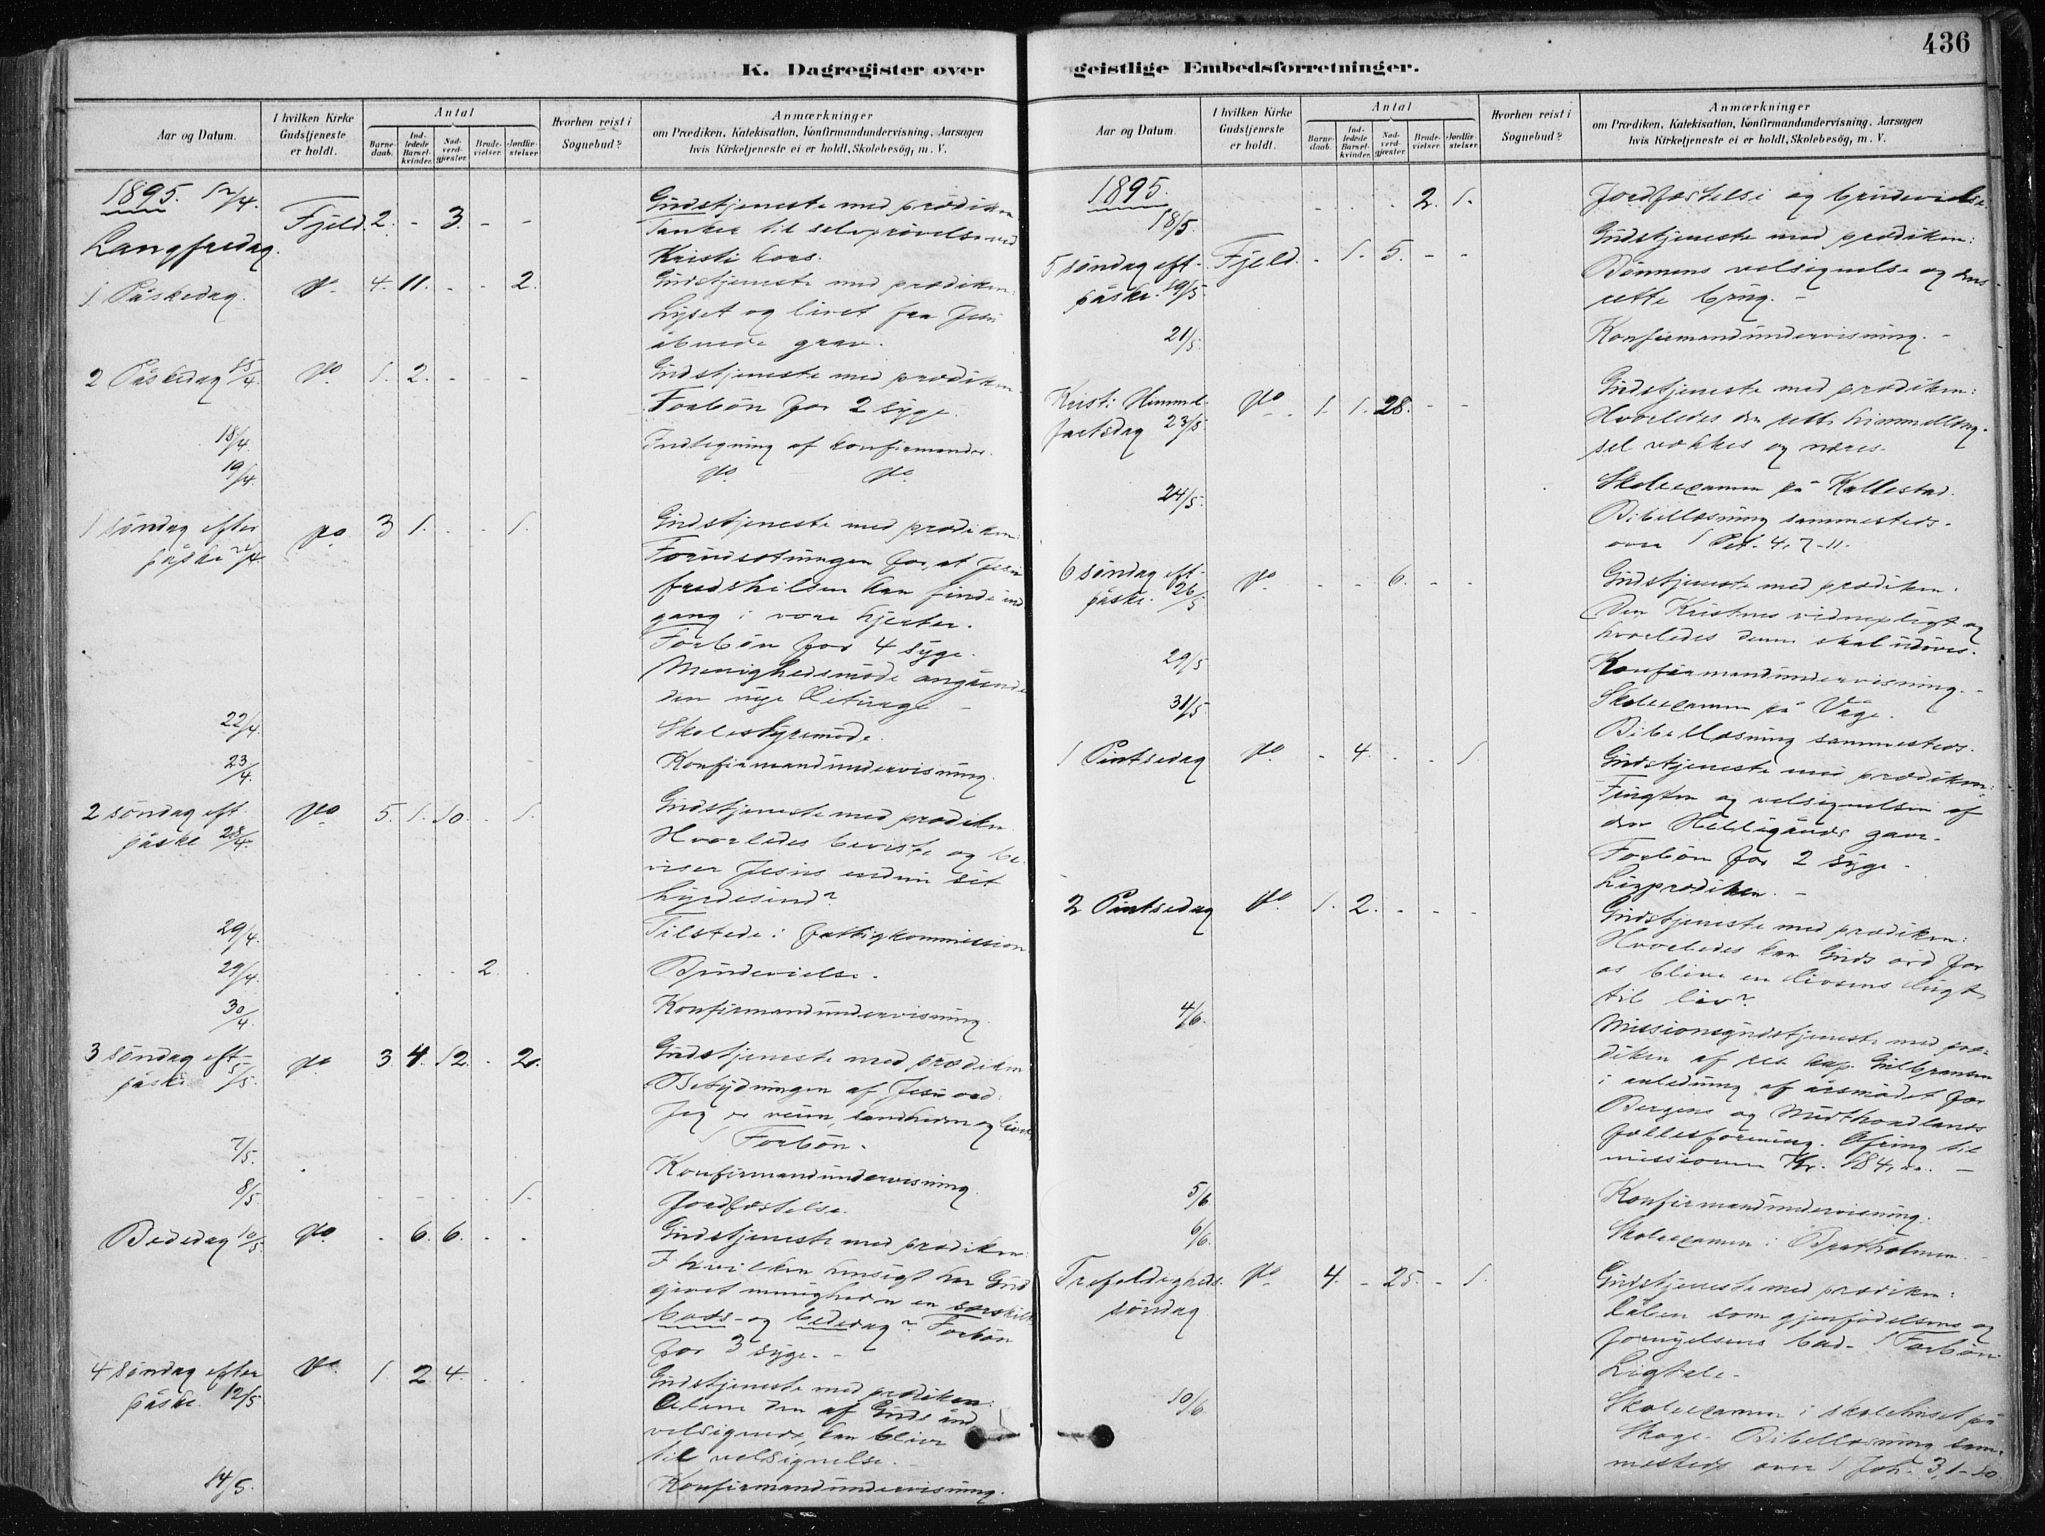 436
K. Dagregister over
geistlige Embedsforretninger.
Aar og Datum.
I hvilken Kirke Gudstjeneste er holdt.
Antal
Barnedaab.
Indledede Barselkvinder.
Nadverdgjæster.
Brudevielser.
Jordfæstelser.
Hvorhen reist i Sognebud?
Anmærkninger
om Prædiken, Katekisation, Konfirmandundervisning, Aarsagen
hvis Kirketjeneste ei er holdt, Skolebesøg, m. V.
1895. 12/4. Fjeld 2. - 3. - - Gudstjeneste med prædiken
Langfredag. Tanker til selvprøvelse ved
Kristi kors.
1 Påskedag. do. 4. 11. - - 2. Gudstjeneste med prædiken:
Lyset og livet fra Jesu
åbnede grav.
2 Påskedag 15/4. do. 1. 2. - - - Gudstjeneste med prædiken
Forbøn for 2 syge.
18/4. Indtegning af konfirmander.
19/4. do. do.
1 søndag efter do 3 1. - - 1. Gudstjeneste med prædiken:
påske 21/4. Forudsætningen for, at Jesu
fredshilsen kan finde ind
gang i vore hjerter.
Forbøn for 4 syge.
Menighedsmøde angående
den nye
22/4. Skolestyremøde.
23/4. Konfirmandundervisning.
2 søndag eft. do. 5. 1. 10. - 1. Gudstjeneste med prædiken
påske 28/4. Hvorledes beviste og be-
viser Jesus endnu sit
hyrdesind?
29/4. Tilstede i fattigkommission
29/4. - - - 2. - Brudevielse.
30/4. Konfirmandundervisning.
3 søndag eft. do 3. 4. 12. - 2. Gudstjeneste med prædiken
påske 5/5. Betydningen af Jesu ord:
Jeg er veien, sandheden og livet
1 Forbøn.
7/5. Konfirmandundervisning.
8/5. - - - - 1. Jordfæstelse.
Bededag 10/5 do. - 6. 6. - - Gudstjeneste med prædiken:
I hvilken hensigt har Gud
givet menigheden en særskilt
bods- og bededag? Forbøn
for 3 syge. -
4 søndag efter do. 1 2 4. - - Gudstjeneste med prædiken:
påske. 12/5 Alene den af Guds ånd
velsignede, kan blive
til velsignelse.
14/5. Konfirmandundervisning.
Aar og Datum.
I hvilken Kirke Gudstjeneste er holdt.
Antal
Barnedaab.
Indledede Barselkvinder.
Nadverdgjæster.
Brudevielser.
Jordfæstelser.
Hvorhen reist i Sognebud?
Anmærkninger
om Prædiken, Katekisation, Konfirmandundervisning, Aarsagen
hvis Kirketjeneste ei er holdt, Skolebesøg, m. V.
1895. 18/5. - - - 2. 1. Jordfæstelse og brudevielse.
5 søndag eft- Fjeld. - 1. 5. - - Gudstjeneste med prædiken:
påske. 19/5. Bønnens velsignelse og dens
rette brug. -
21/5. Konfirmandundervisning. -
Kristi Himmel- do. 1. 1. 28. - - Gudstjeneste med prædiken:
fartsdag 23/5 Hvorledes den rette himmellæng-
sel vækkes og næres.
24/5. Skoleexamen på Kallestad.
Bibellæsning sammesteds.
over 1 Pet. 4,7-11.
6 søndag eft- do. - - 6. - - Gudstjeneste med prædiken:
påske. 26/5 Den Kristnes vidnepligt og
hvorledes denne skal udøves.
29/5 Konfirmandundervisning. -
31/5. Skoleexamen på Våge.
Bibellæsning sammesteds.
1 Pintsedag do. - 4. - - 1. Gudstjeneste med prædiken:
Frugten og velsignelsen af
den Helligånds gave.
Forbøn for 2 syge.
Ligprædiken. -
2 Pintsedag do. 1. 2. - - - Gudstjeneste med prædiken:
Hvorledes kan Guds ord for
os blive en livsens lugt
til liv?
4/6. Missionsgudstjeneste med præ-
diken af res. kap. Gulbransen
i anledning af årsmødet for
Bergens og Midthordlands
fællesforening. Ofring til
missionen Kr. 184,
5/6 Konfirmandundervisning.
6/6. Skoleexamen i Bratholmen.
Trefoldigheds- do. 4. - 25. - 1. Gudstjeneste med prædiken:
søndag Dåben som gjenfødelsens og
fornyelsens bad. 1 Forbøn
Ligtale.
10/6. Skoleexamen i skolehuset på
Skoge. Bibellæsning sam-
mesteds over 1 Joh. 3,1-10